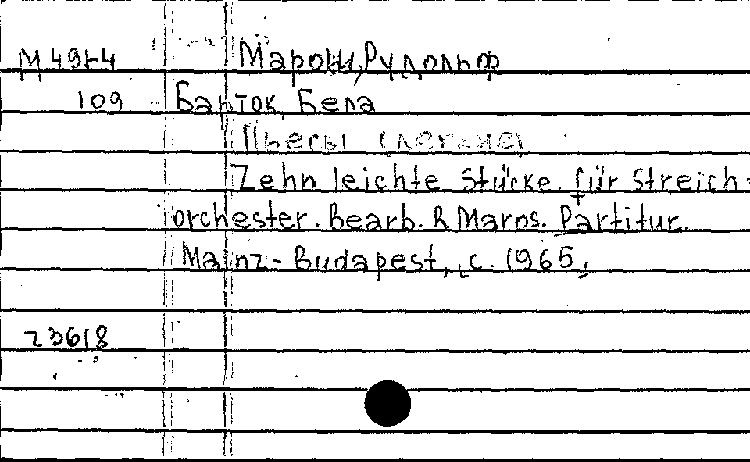 М 49г4 Марош, Рудольф
109 Барток, Бела
Пьесы (легкие)
Zehn leichte Stücke für Streich=
orchester. Bearb. R Maros. Partitur.
Mainz - Budapest, c. 1965.
23618